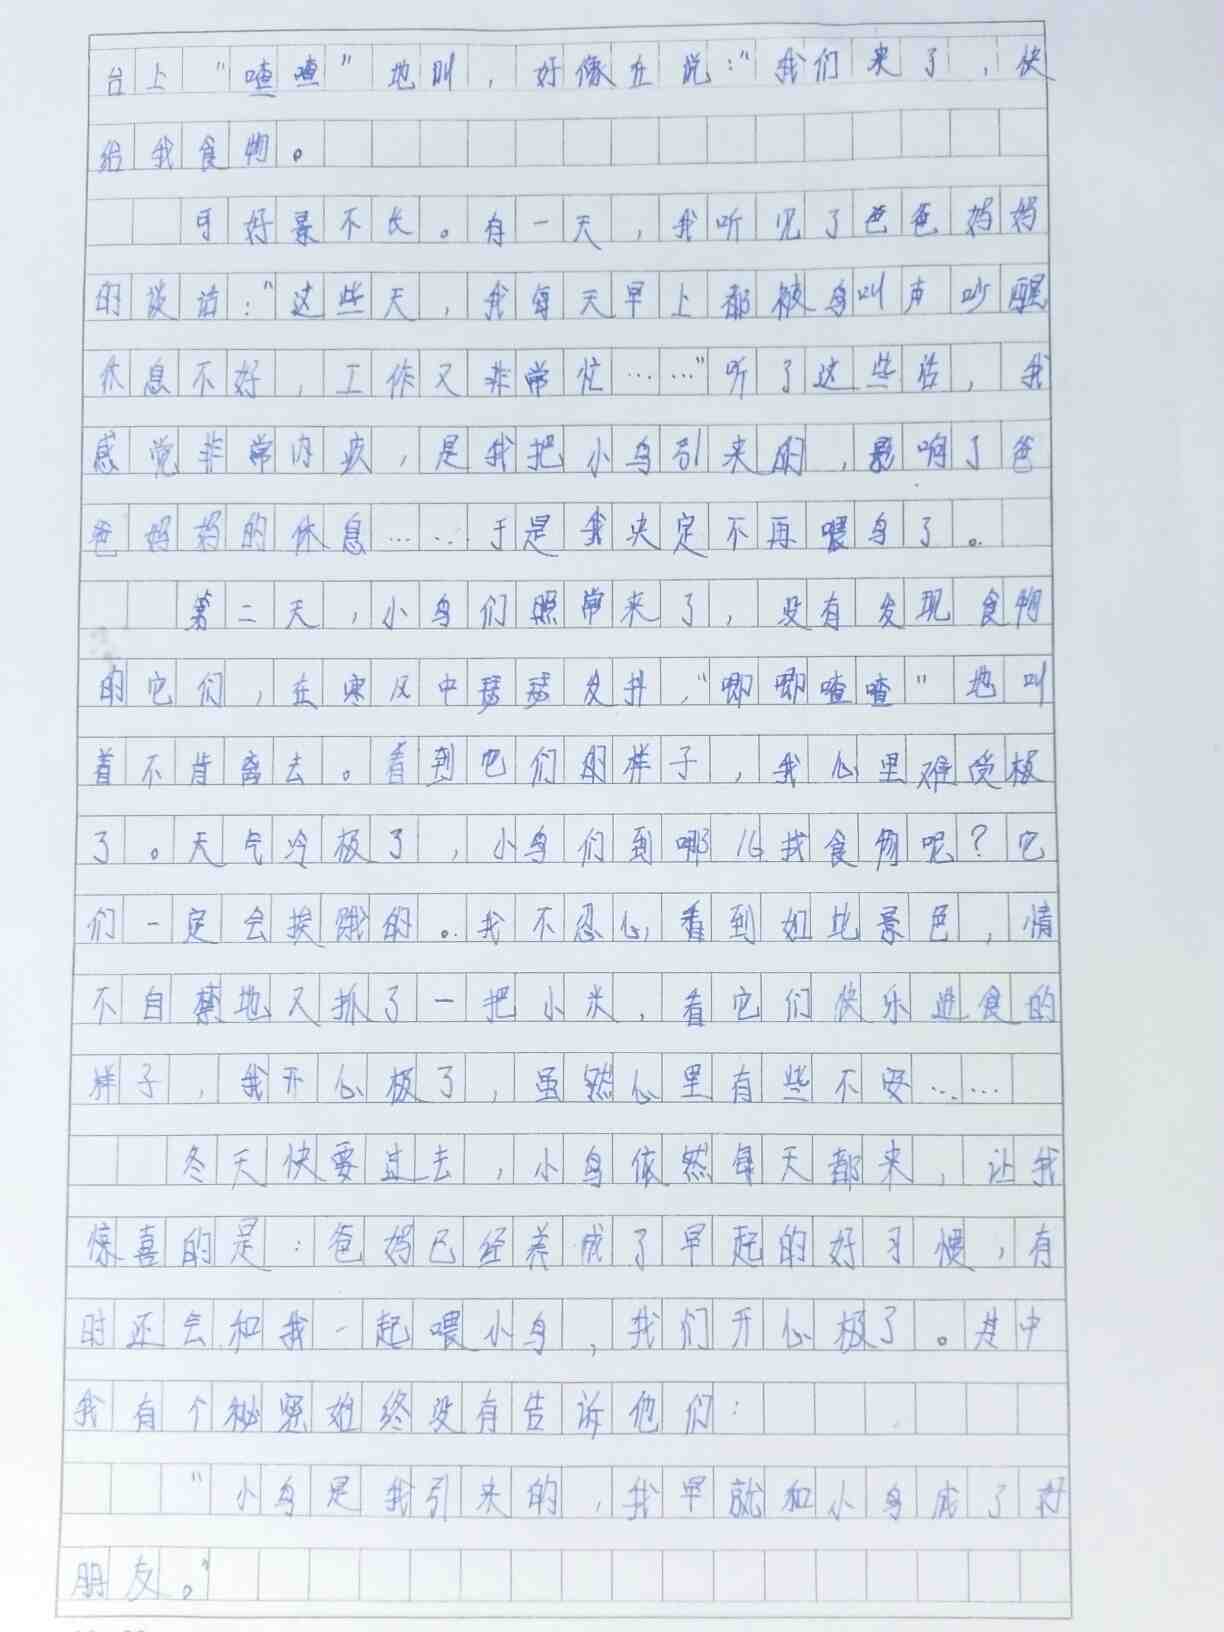 台上“喳喳”地叫，好像在说：“我们来了，快
给我食物。
可好景不长。有一天，我听见了爸爸妈妈
的谈话：“这些天，我每天早上都被鸟叫声吵醒
休息不好，工作又非常忙……”听了这些话，我
感觉非常内疚，是我把小鸟引来的，影响了爸
爸妈妈的休息……于是我决定不再喂鸟了。
第二天，小鸟们照常来了，没有发现食物
的它们，在寒风中瑟瑟发抖，“唧唧喳喳”地叫
着不肯离去。看到它们的样子，我心里难受极
了。天气冷极了，小鸟们到哪儿找食物呢？它
们一定会挨饿的。我不忍心看到如此景色，情
不自禁地又抓了一把小米，看它们快乐进食的
样子，我开心极了，虽然心里有些不安……
冬天快要过去，小鸟依然每天都来，让我
惊喜的是：爸妈已经养成了早起的好习惯，有
时还会和我一起喂小鸟，我们开心极了。其中
我有个秘密始终没有告诉他们：
“小鸟是我引来的，我早就和小鸟成了好
朋友。”